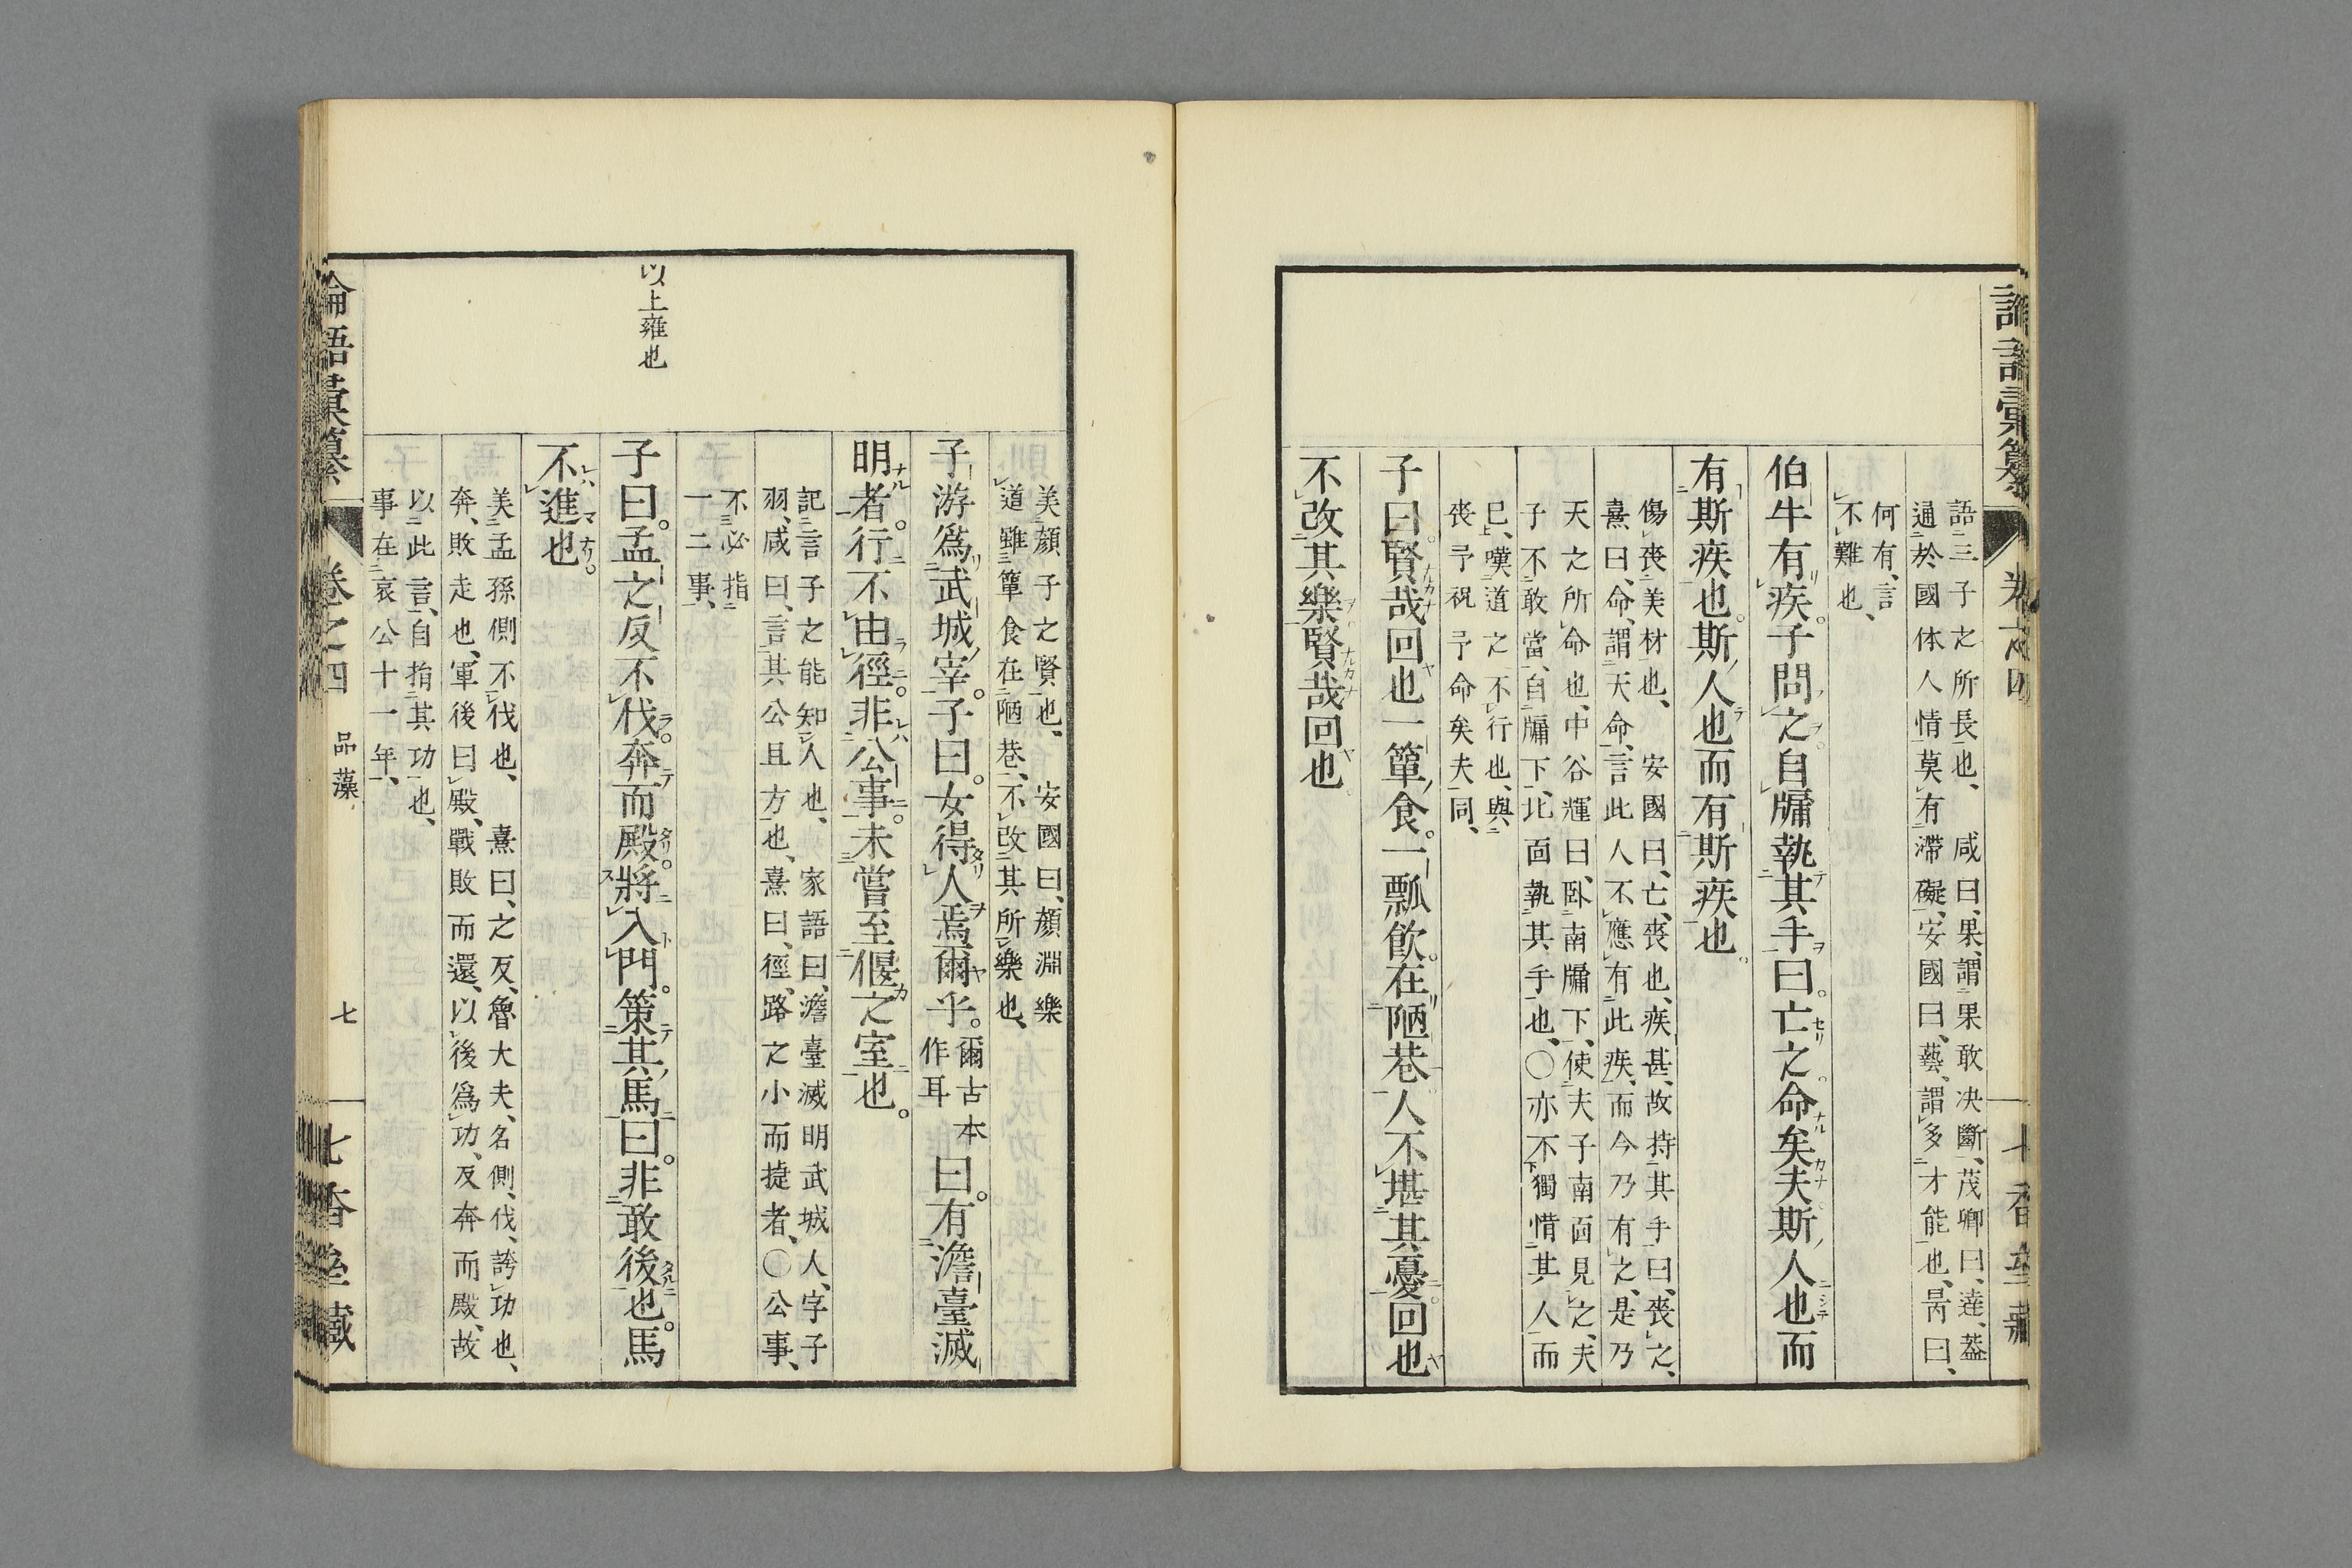 論語彙纂 卷之四 七香堂藏
語三子之所長也、咸曰、果、謂果敢決斷、茂卿曰、達、蓋
通於國体人情莫有滯礙、安國曰、藝、謂多才能也、昺曰、
何有、言
不難也、
伯牛有疾。子問之。自牖執其手曰。亡之。命矣夫。斯人也而
有斯疾也。斯人也而有斯疾也。
傷喪美材也、安國曰、亡、喪也、疾甚、故持其手曰、喪之、
熹曰、命、謂天命、言此人不應有此疾、而今乃有之、是乃
天之所命也、中谷煇曰、臥南牖下、使夫子南面見之、夫
子不敢當、自牖下、北面執其手也、〇亦不獨惜其人而
已、嘆道之不行也、與
喪予祝予命矣夫同、
子曰。賢哉回也。一簞食。一瓢飮。在陋巷。人不堪其憂。回也
不改其樂。賢哉回也。
美顔子之賢也、安國曰、顔淵樂
道雖簞食在陋巷、不改其所樂也、
子游爲武城宰。子曰。女得人焉爾乎。爾古本作耳曰。有澹臺滅
明者。行不由徑。非公事。未嘗至偃之室也。
記言子之能知人也、家語曰、澹臺滅明武城人、字子
羽、咸曰、言其公且方也、熹曰、徑、路之小而捷者、〇公事、
不必指
一二事、
以上雍也
子曰。孟之反不伐。奔而殿。將入門。策其馬曰。非敢後也。馬
不進也。
美孟孫側不伐也、熹曰、之反、魯大夫、名側、伐、誇功也、
奔、敗走也、軍後曰殿、戰敗而還、以後爲功、反奔而殿、故
以此言、自指其功也、
事在哀公十一年、
論語彙纂 卷之四 品藻 七 七香堂藏